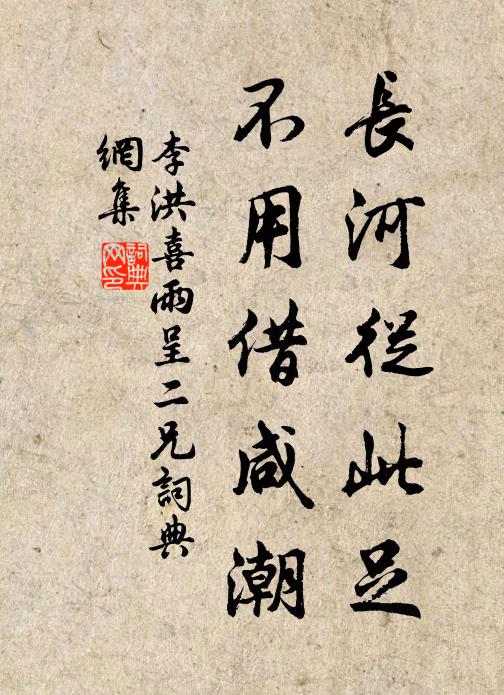 長河從此足
不用借咸潮
李洪喜雨呈二兄詞典
網集
詞典
网印